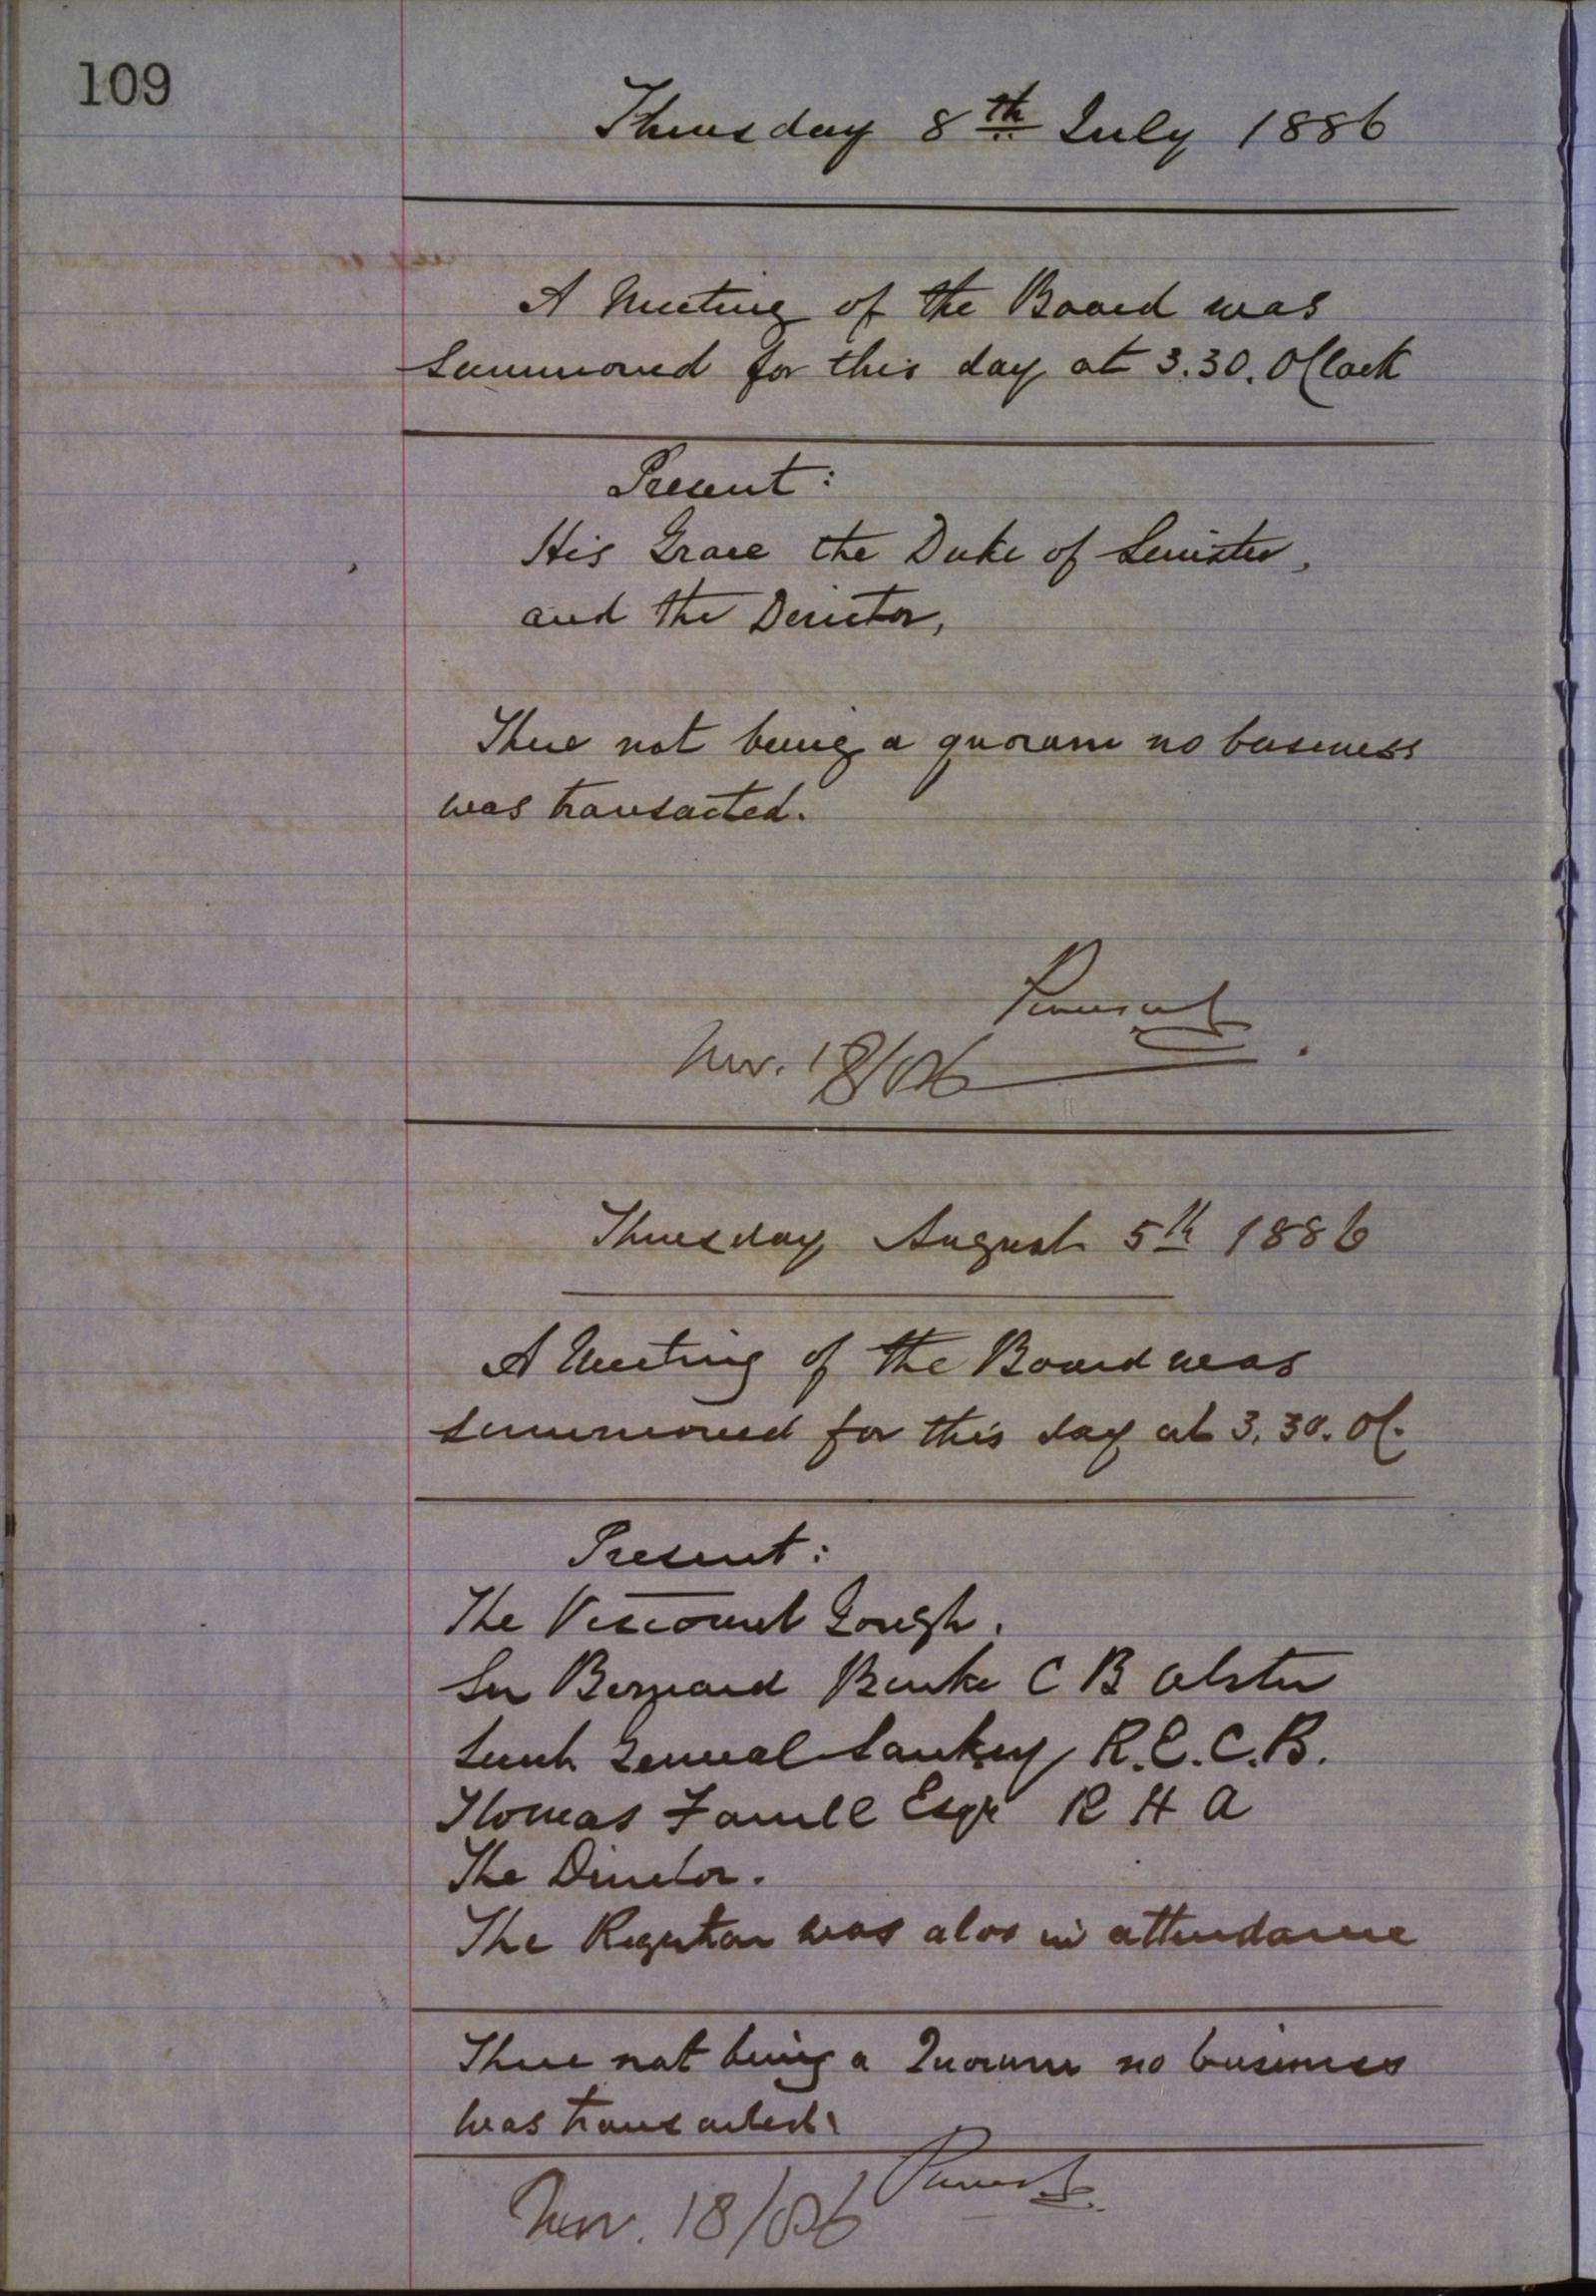 109
Thursday 8th July 1886
A Meeting of the Board was
Summoned for this day at 3.30. OClock
Present:
His Grace the Duke of Leinster,
and the Director,
There not being a quorum no business
was transacted.
Powerscourt
Nov. 18/86
Thursday August 5th 1886
A Meeting of the Board was
summoned for this day at 3.30. OC.
Present:
The Viscount Gough.
Sir Bernard Burke C B Ulster
Lieut General Sankey R.E. C.B.
Thomas Farrell Esqr R H A
The Director.
The Registrar was also in attendance
There not being a Quorum no business
was transacted.
Powerscourt
Nov. 18/86